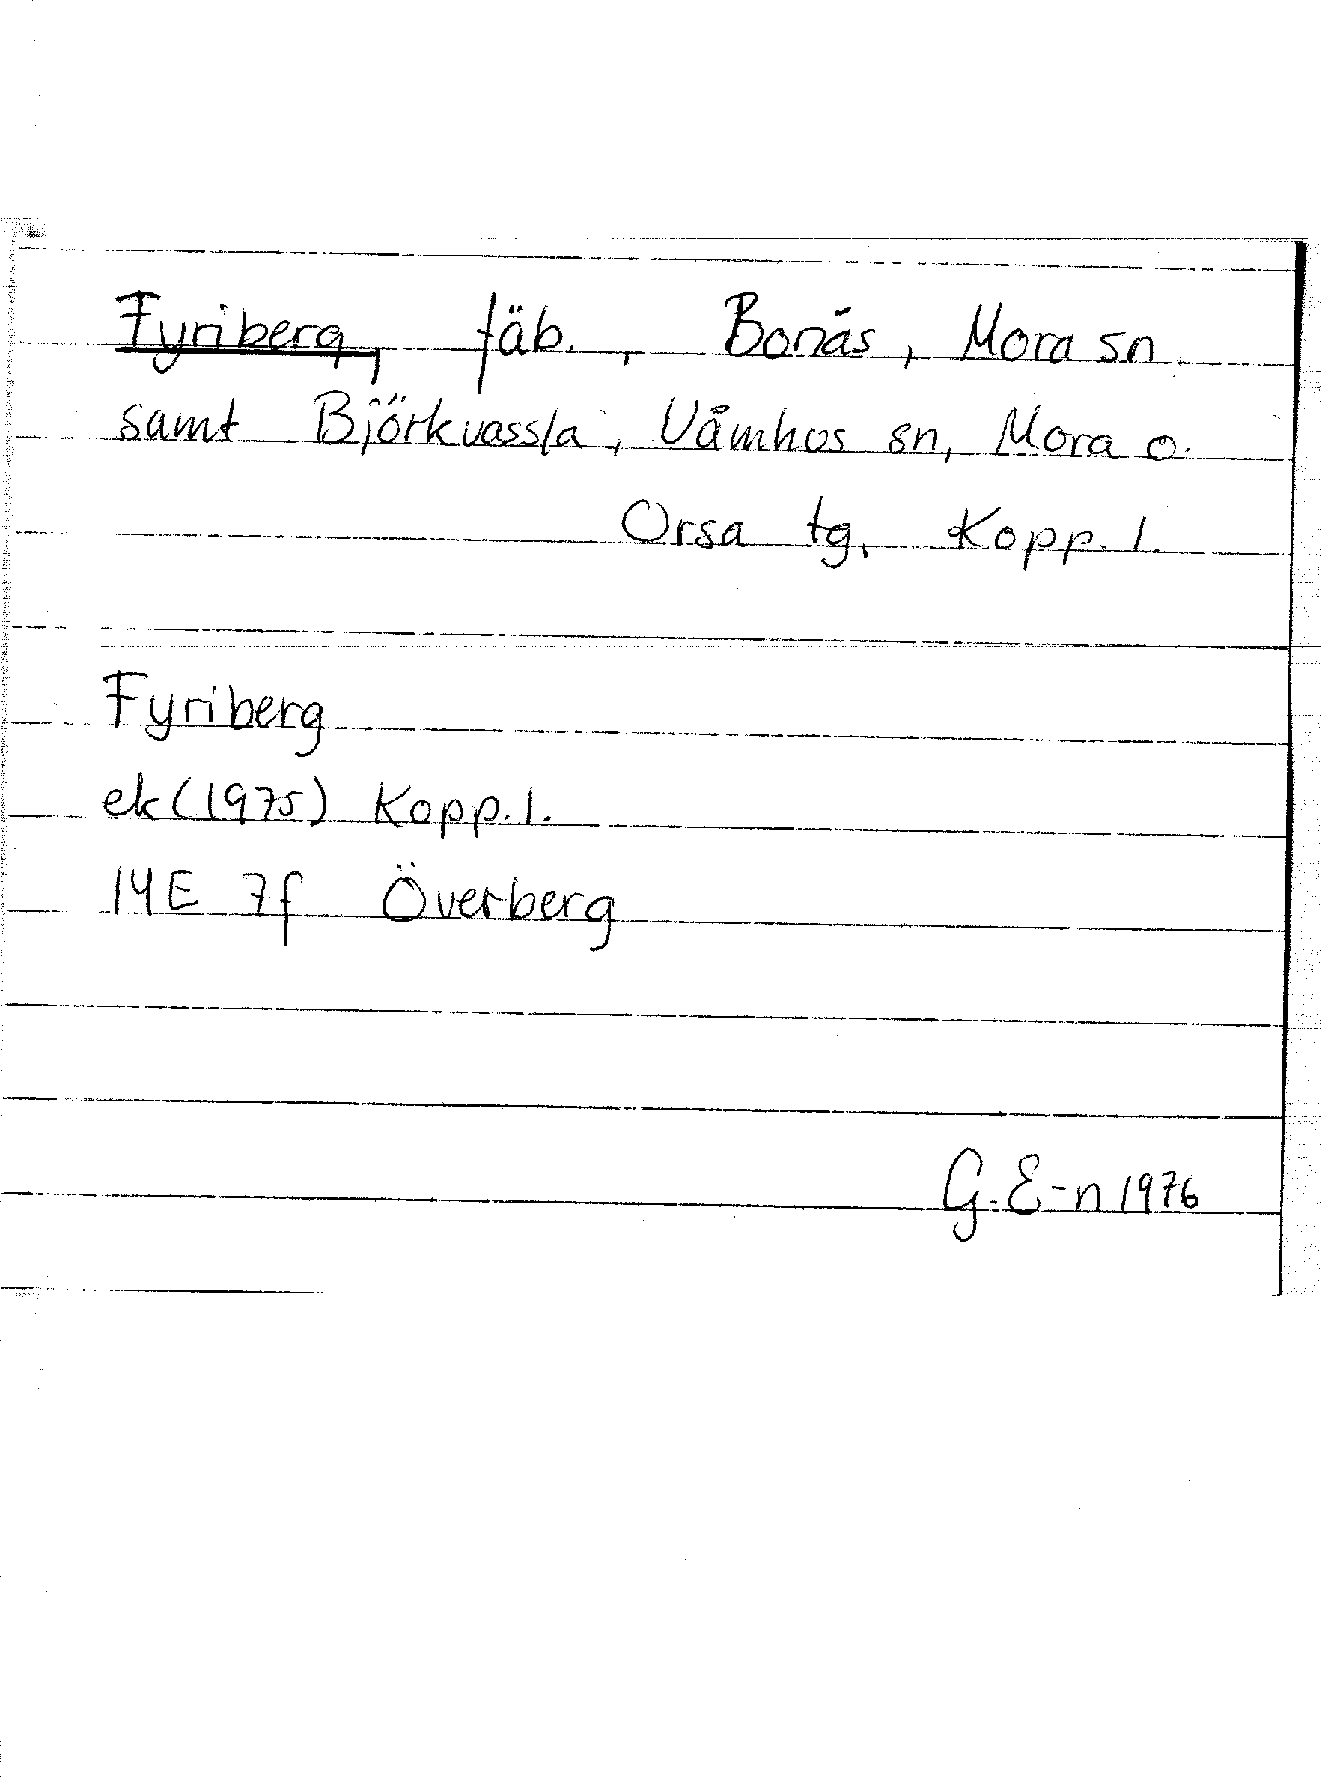 Fyriberg, fäb., Bonäs, Mora sn
samt Björkvassla, Våmhus sn, Mora o.
Orsa tg, Kopp. l.
Fyriberg
ek (1975) Kopp. l.
14E 7f Överberg
G. E-n 1976